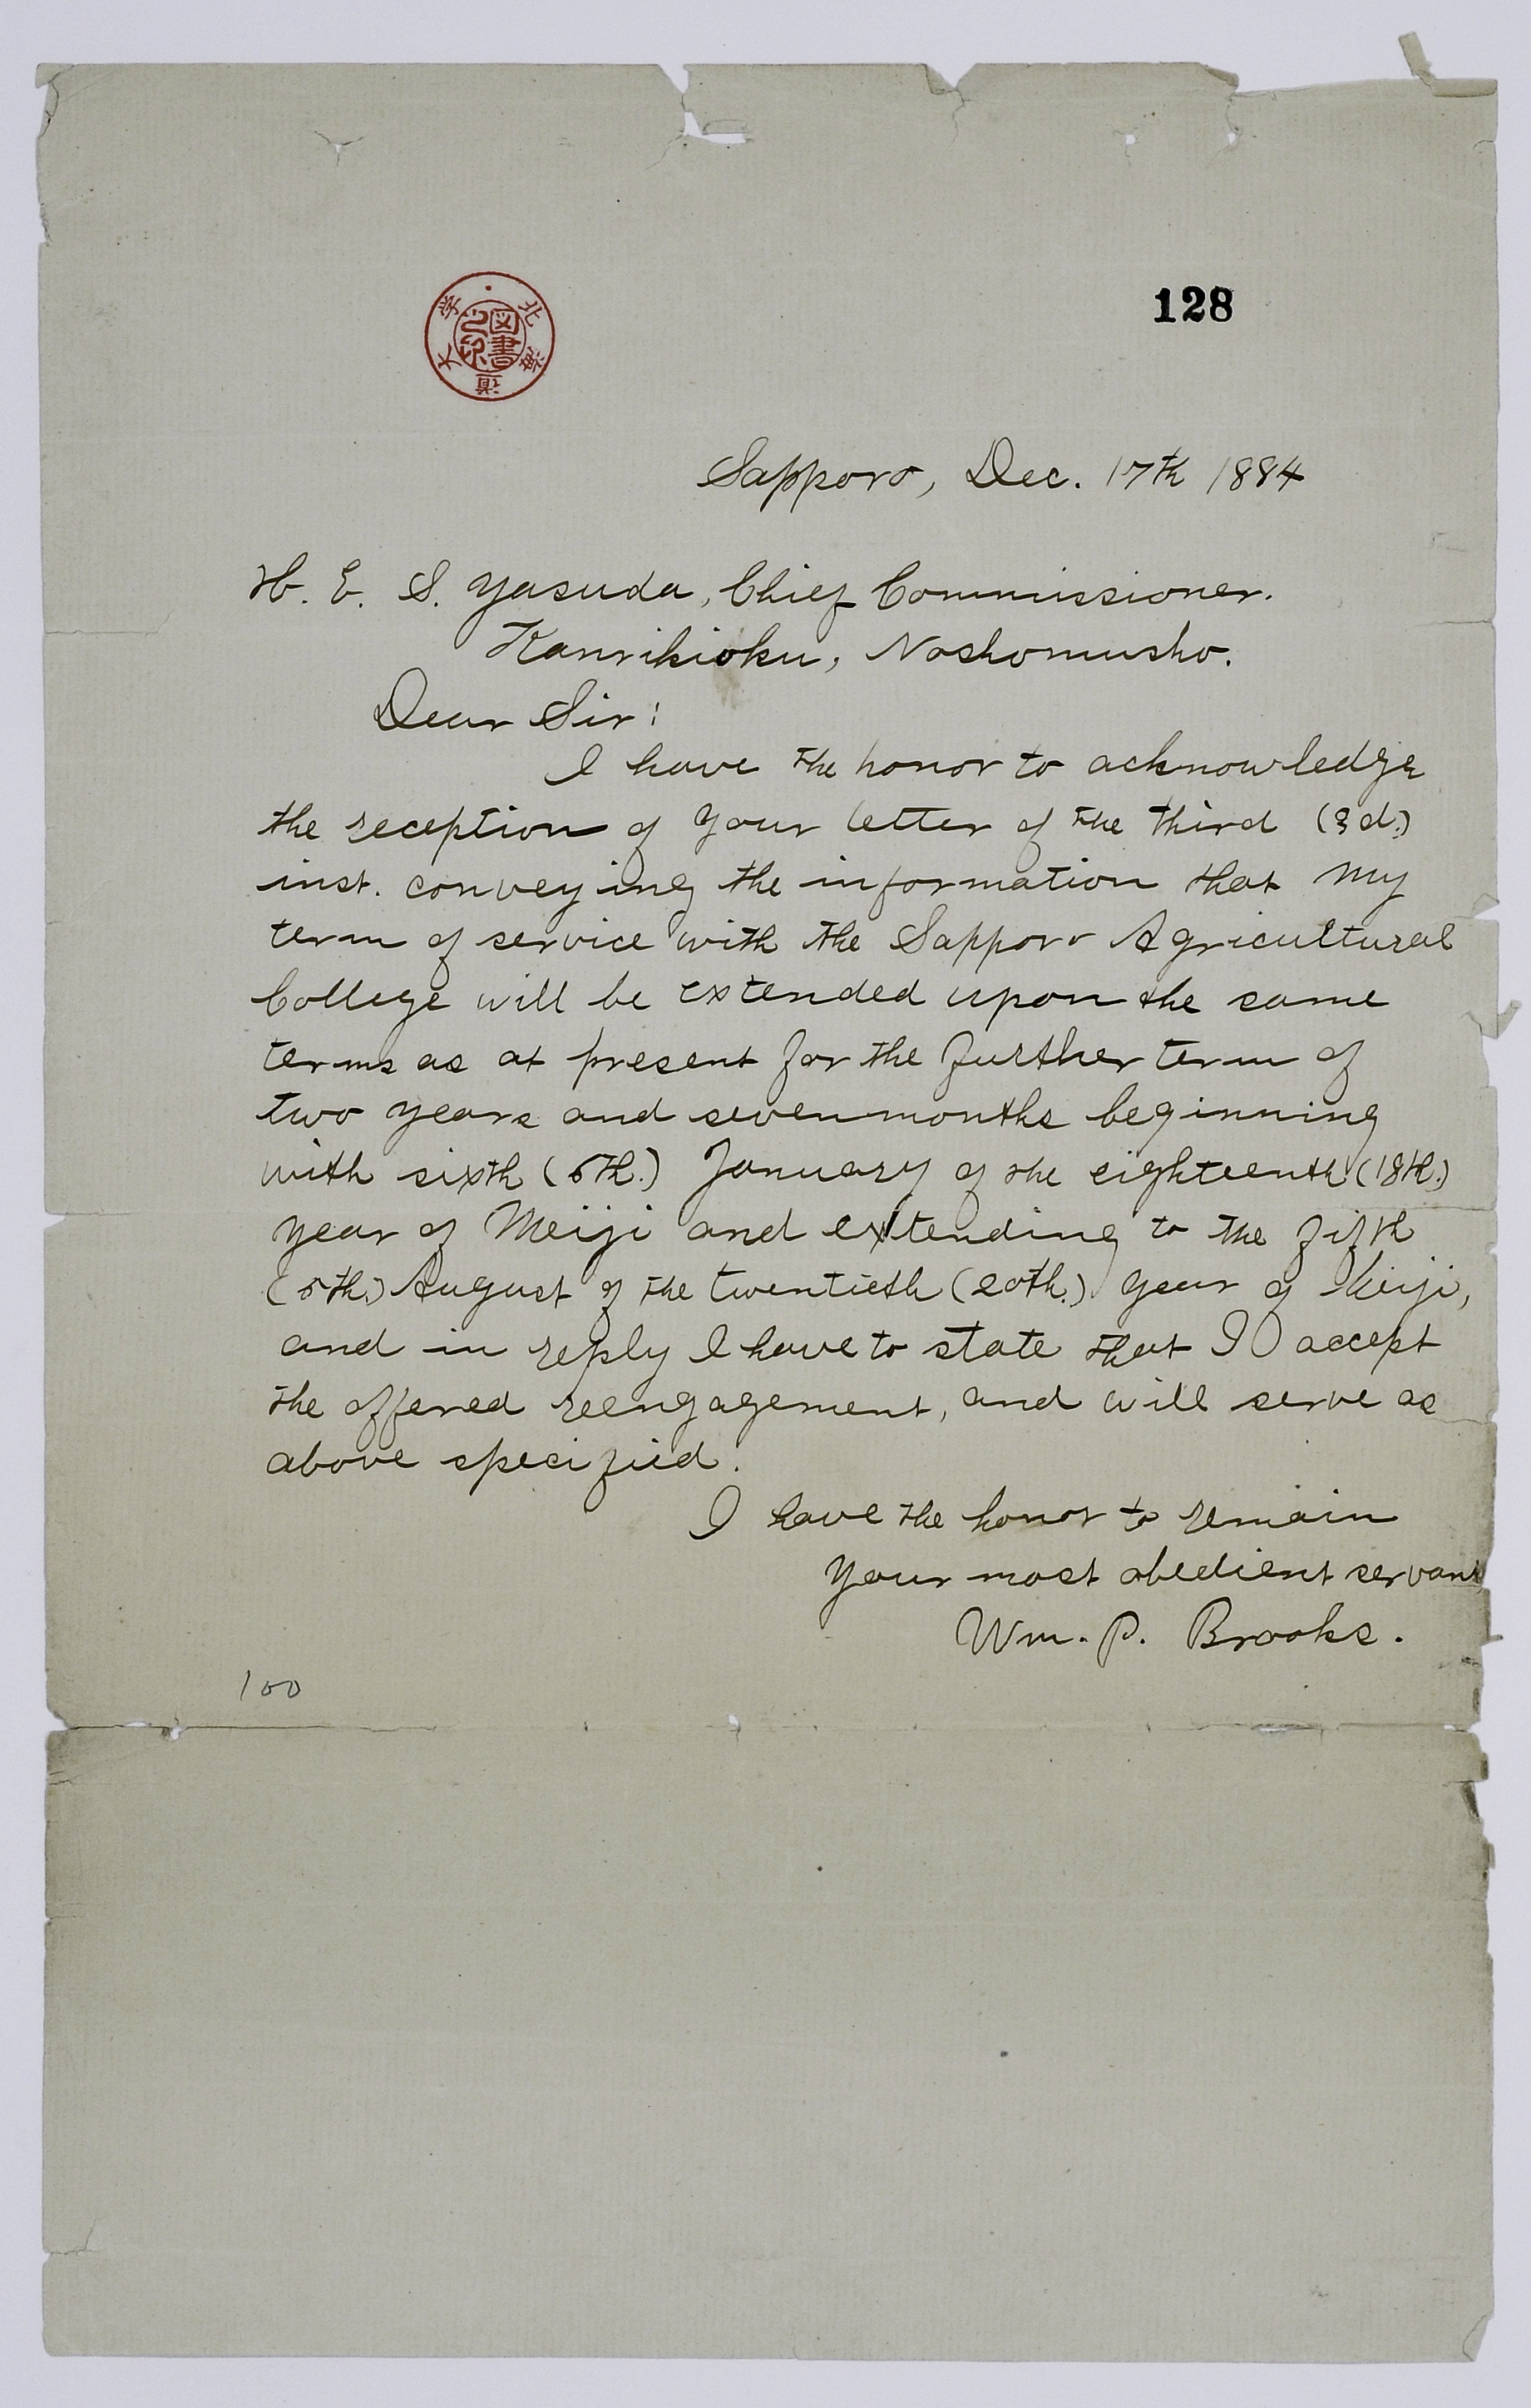 北海道大学
図書之印
128
Sapporo, Dec. 17th 1884
H. E. S. Yasuda, Chief Commissioner.
Kanrikioku, Noshomusho.
Dear Sir:
I have the honor to acknowledge
the reception of your letter of the third (3d.)
inst. conveying the information that my
term of service with the Sapporo Agricultural
College will be extended upon the same
terms as at present for the further term of
two years and seven months beginning
with sixth (6th.) January of the eighteenth (18th.)
year of Meiji and extending to the fifth
(5th.) August of the twentieth (20th.) year of Meiji,
and in reply I have to state that I accept
the offered reengagement, and will serve as
above specified.
I have the honor to remain
Your most obedient servant
Wm. P. Brooks.
100